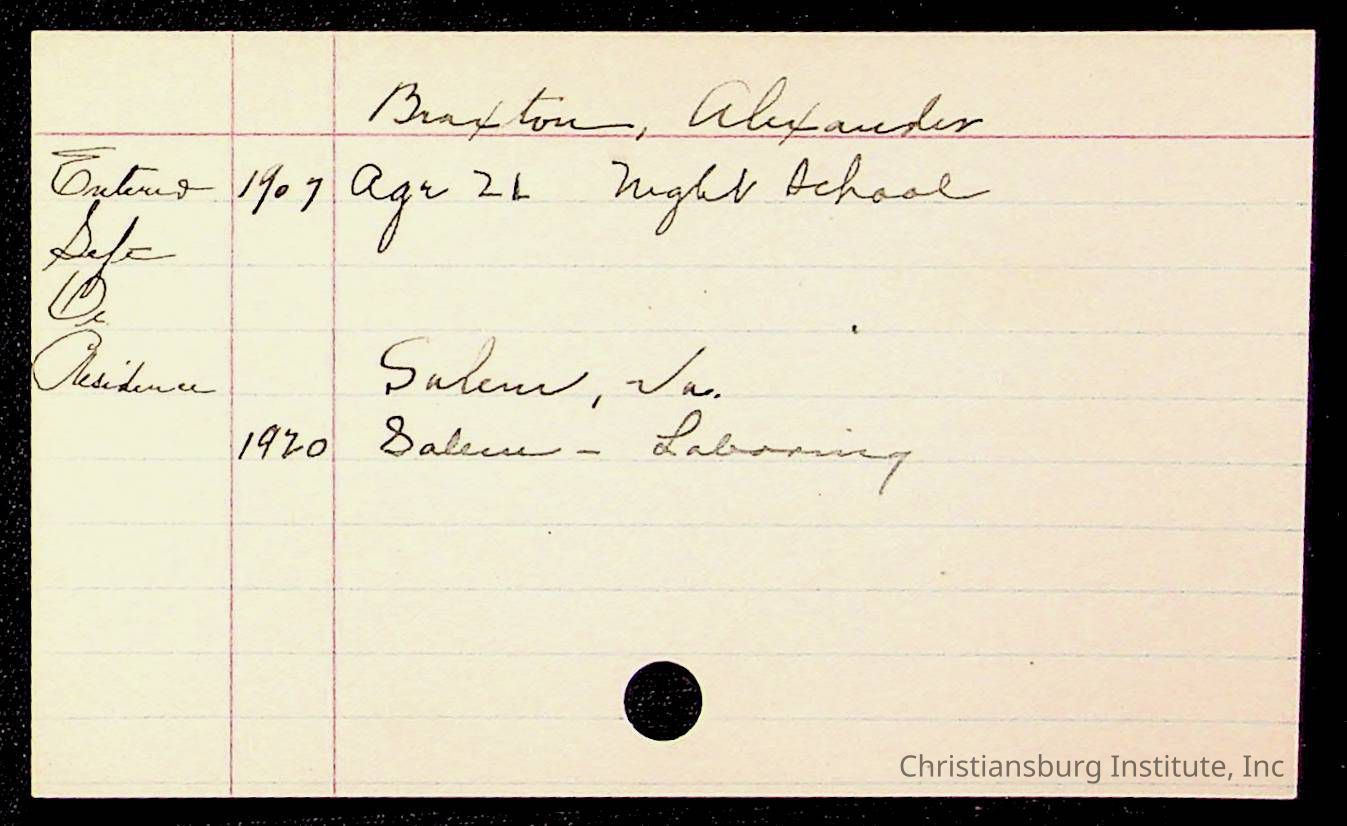 Braxton, Alexander
Entered 1907 Age 21 Night School
Left
Residence Salem, Va.
1920 Salem - Laboring
Christiansburg Institute, Inc